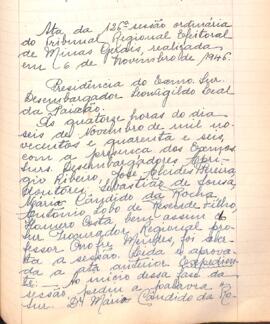 Ata da 126ª sessão ordinária
do Tribunal Regional Eleitoral
de Minas Gerais, realizada
em 6 de Novembro de 1946.
Presidência do Exmo. Snr.
Desembargador Leovigildo Leal
da Paixão.
As quatorze horas do dia
seis de Novembro de mil no-
vecentos e quarenta e seis,
com a presença dos Exmos.
Snrs. Desembargadores
Ribeiro, José Alcides Pereira,
Doutores, Sebastião de Sousa,
Mário Cândido da Rocha,
Antonio Lobo de Resende Filho,
Homero Costa, bem assim o
Snr Procurador Regional pro-
fessor Onofre Mendes, foi aber-
ta a sessão. Lida e aprova-
da a ata anterior. Expedien-
te: — No início dessa fase da
sessão, pediu a palavra o
Snr. Dr. Mário Cândido da Ro-